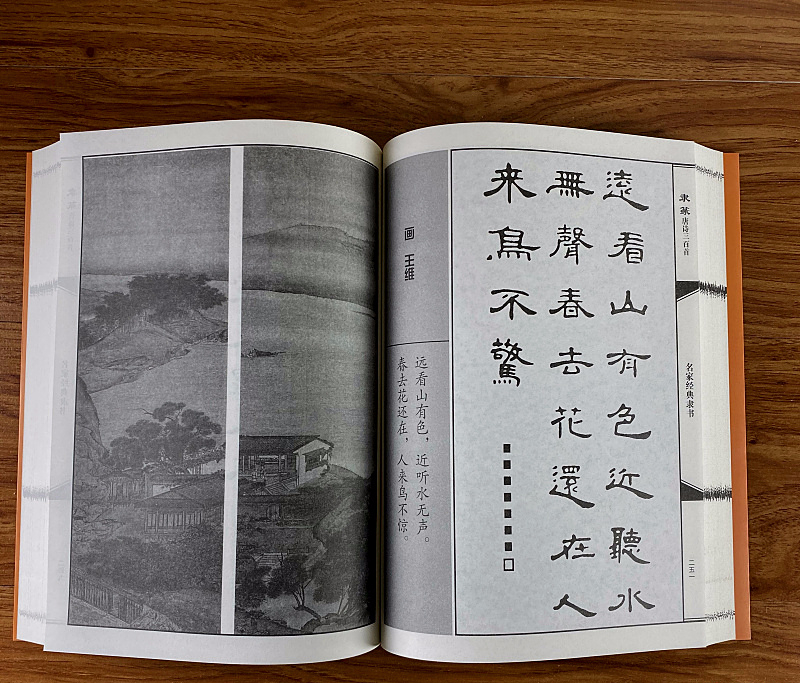 隶篆唐诗三百首
名家经典隶书
二五一
遠看山有色近聽水
無聲春去花還在人
来鳥不驚
画 王维
远看山有色，近听水无声。
春去花还在，人来鸟不惊。